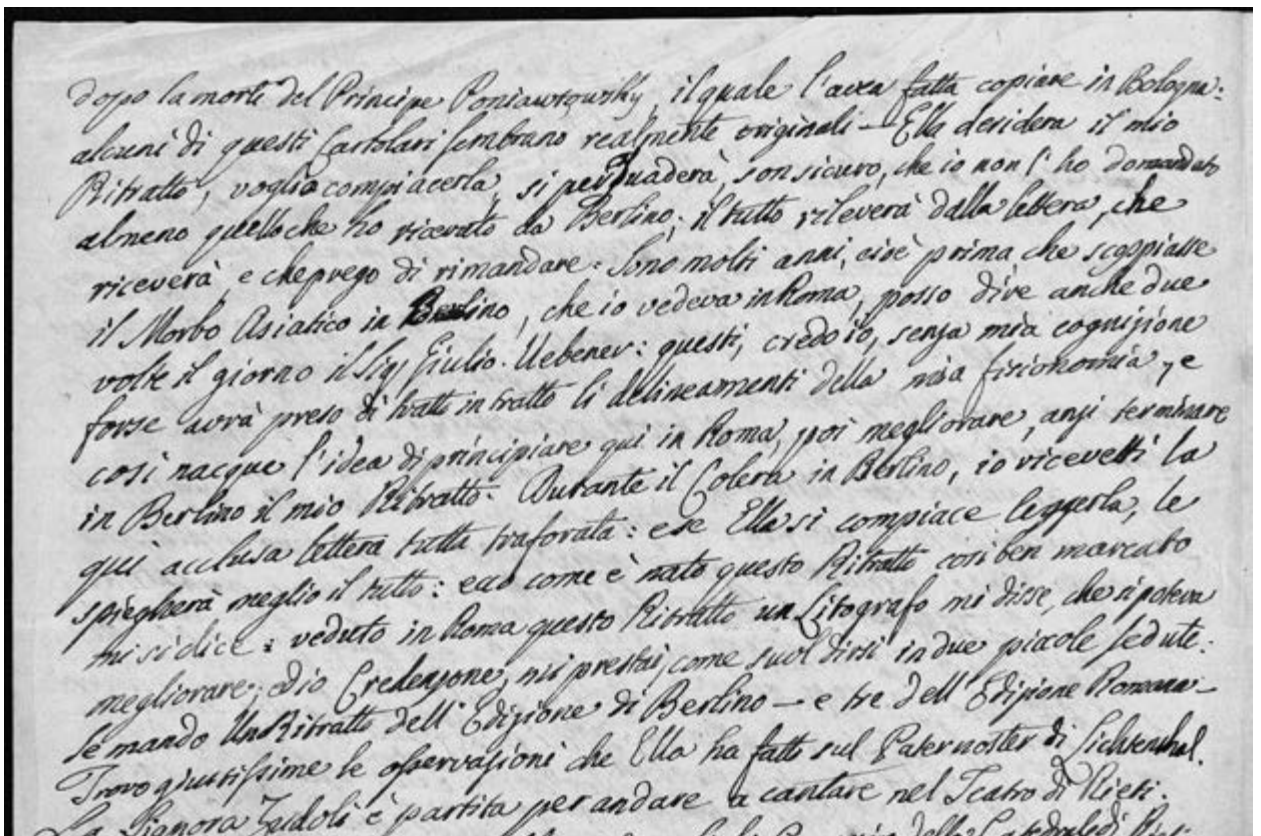 dopo la morte del Principe Poniawtowsky, il quale l'avea fatta copiare in Bologna:
alcuni di questi Cartolari sembrano realmente originali — Ella desidera il mio
Ritratto, voglio compiacerla, si persuaderà, son sicuro, che io non l'ho domandato
almeno quello che ho ricevuto da Berlino; il tutto rileverà dalla lettera, che
riceverà, e che prego di rimandare. Sono molti anni, cioè prima che scoppiasse
il Morbo Asiatico in Berlino, che io vedeva in Roma, posso dire anche due
volte il giorno il Sig. Giulio Uebener: questi, credo io, senza mia cognizione
forse avrà preso di tratto in tratto li delineamenti della mia fisionomia, e
così nacque l'idea di principiare qui in Roma, poi megliorare, anzi terminare
in Berlino il mio Ritratto. Durante il Colera in Berlino, io ricevetti la
qui acclusa lettera tutta traforata: e se Ella si compiace leggerla, le
spiegherà meglio il tutto: ecco come è nato questo Ritratto così ben marcato
mi si dice: veduto in Roma questo Ritratto un Litografo mi disse, che si poteva
megliorare, ed io Credenzone, mi prestai, come suol dirsi in due piccole sedute.
Le mando Un Ritratto dell'Edizione di Berlino — e tre dell'Edizione Romana —
Trovo giustissime le osservazioni che Ella ha fatto sul Paternoster di Lichtenthal.
La Signora è partita per andare a cantare nel Teatro di Rieti.
della Cattedrale di